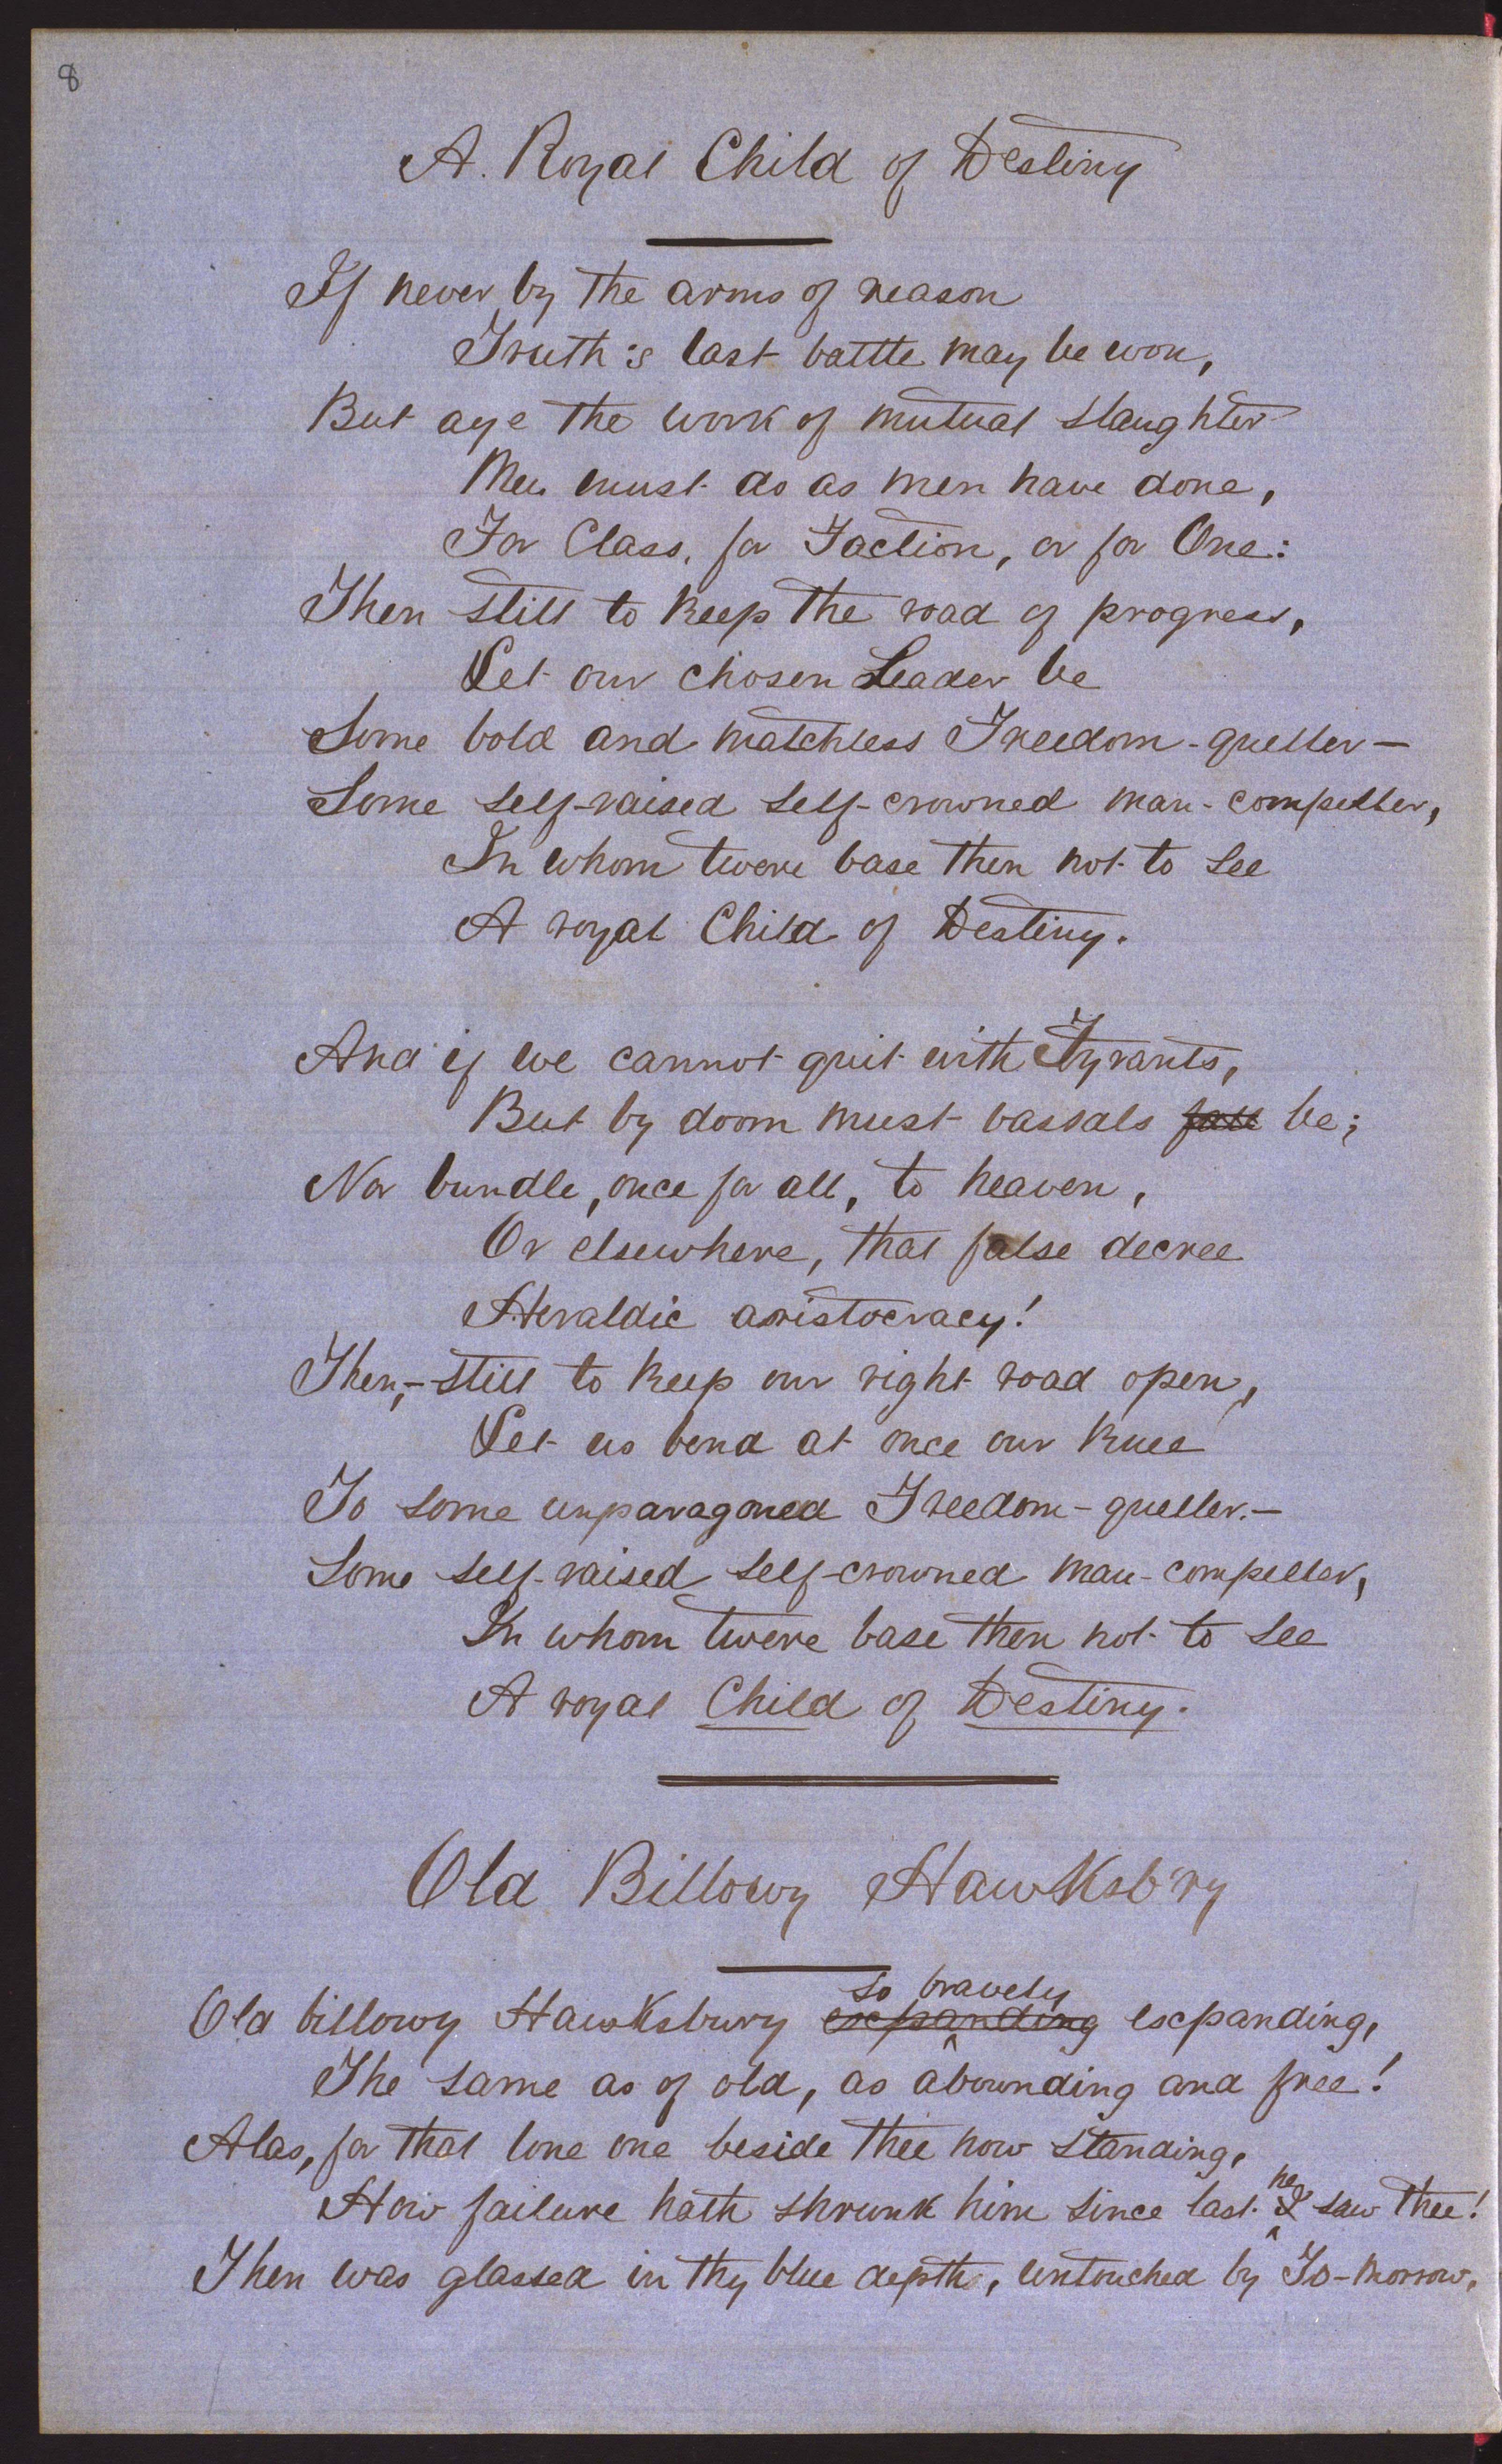 8
A. Royal Child of Destiny
If never by the arms of reason
Truth's last battle may be won,
But aye the work of mutual slaughter
Men must do as men have done,
For Class, for Faction, or for One:
Then still to keep the road of progress,
Let our chosen Leader be
Some bold and matchless Freedom-queller—
Some self-raised self-crowned man-compeller,
In whom twere base then not to see
A royal Child of Destiny.
And if we cannot quit with Tyrants,
But by doom must vassals fall be;
Nor bundle, once for all, to heaven,
Or elsewhere, that false decree
Heraldic aristocracy!
Then,—still to keep our right road open,
Let us bend at once our knee
To some unparagoned Freedom-queller.—
Some self-raised self-crowned man-compeller,
In whom twere base then not to see
A royal Child of Destiny.
Old Billowy Hawksb'ry
so bravely
Old billowy Hawksbury expanding expanding,
The same as of old, as abounding and free!
Alas, for that lone one beside thee now standing,
he
How failure hath shrunk him since last I saw thee!
Then was glassed in thy blue depth, untouched by To-morrow,